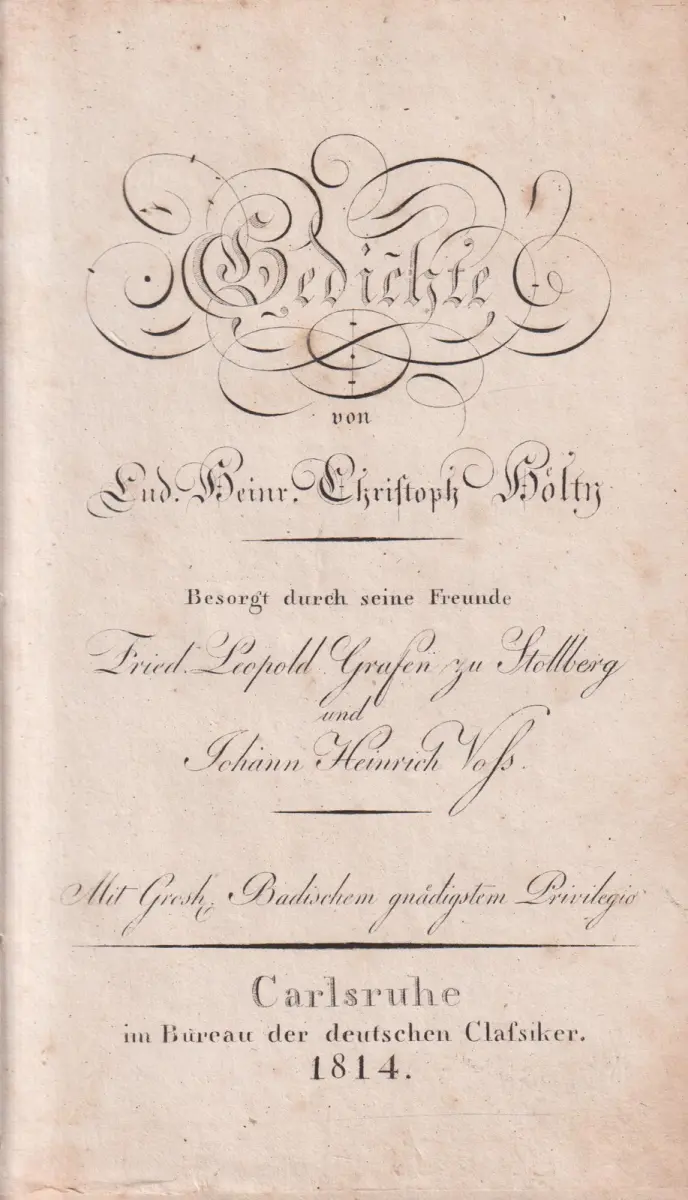 Gedichte
von
Lud. Heinr. Chriſtoph Hölty
Besorgt durch seine Freunde
Fried. Leopold Grafen zu Stollberg
und
Johann Heinrich Voſs.
Mit Grosh. Badischem gnädigstem Privilegio
Carlsruhe
im Büreau der deutschen Claſsiker.
1814.